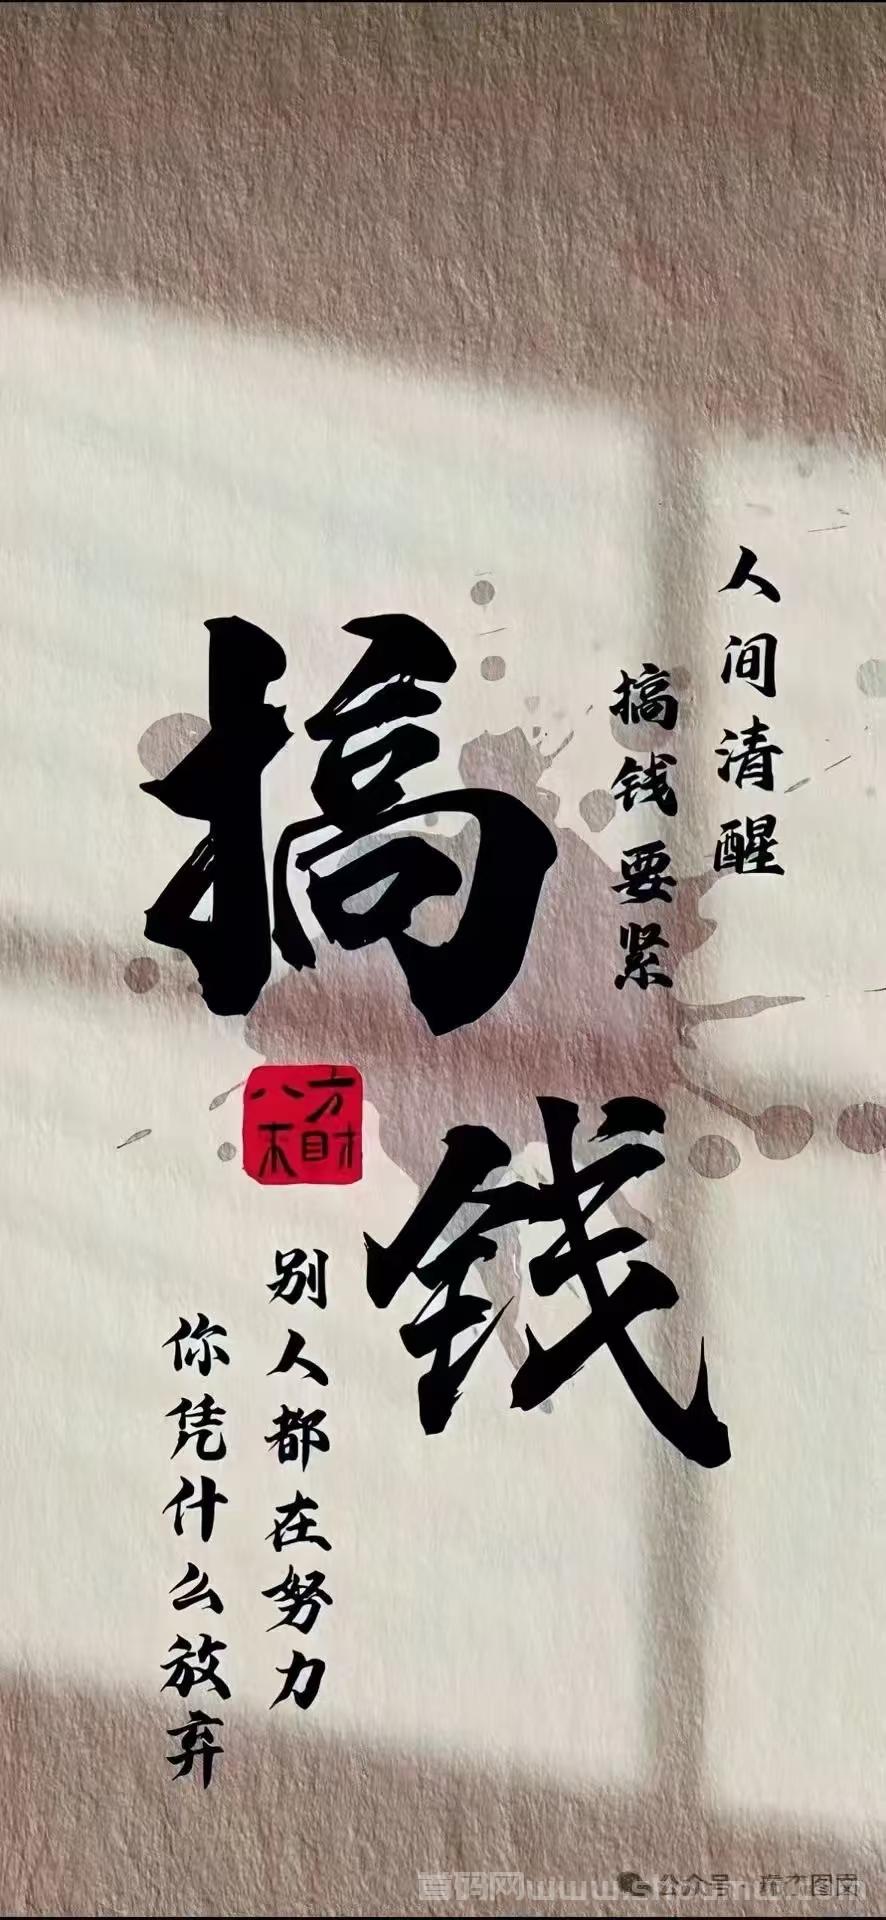 人间清醒
搞钱要紧
搞
钱
八方来财
别人都在努力
你凭什么放弃
公众号
首码网www.